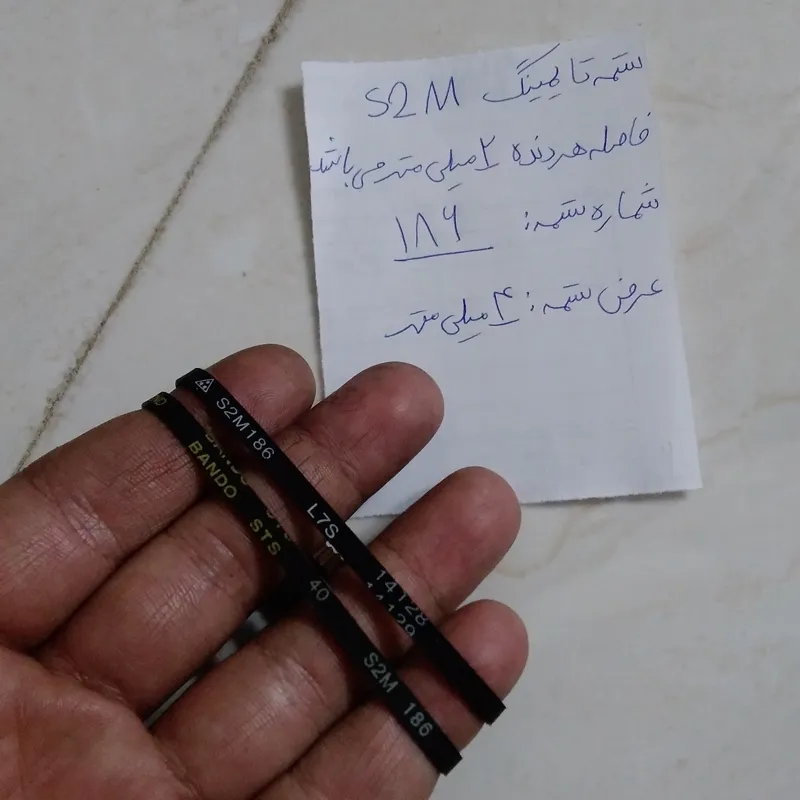 ستمه تایمینگ S2M
فاصله هر دنده ۲ میلی متر می باشد
شماره ستمه: ۱۸۶
عرض ستمه: ۴ میلی متر
S2M186 L7S 14128
BANDO STS 40 S2M 186